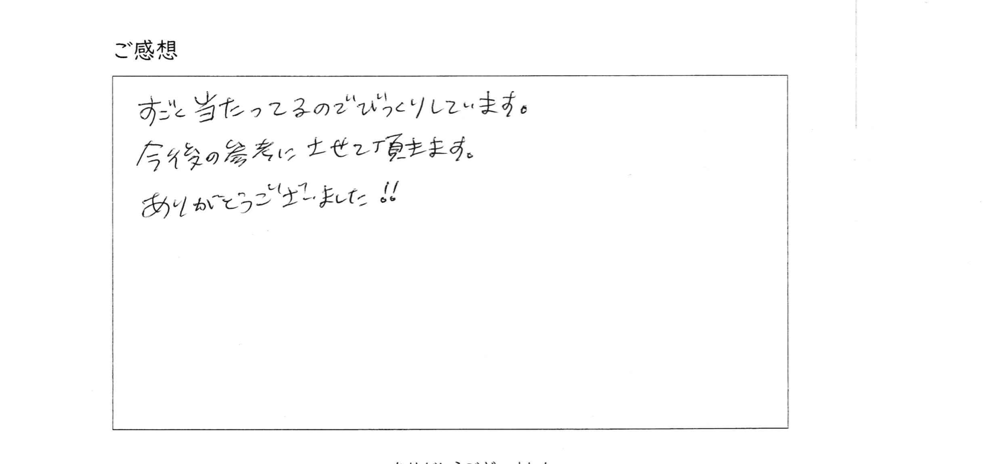 ご感想
すごく当たってるのでびっくりしています。
今後の参考にさせて頂きます。
ありがとうございました!!